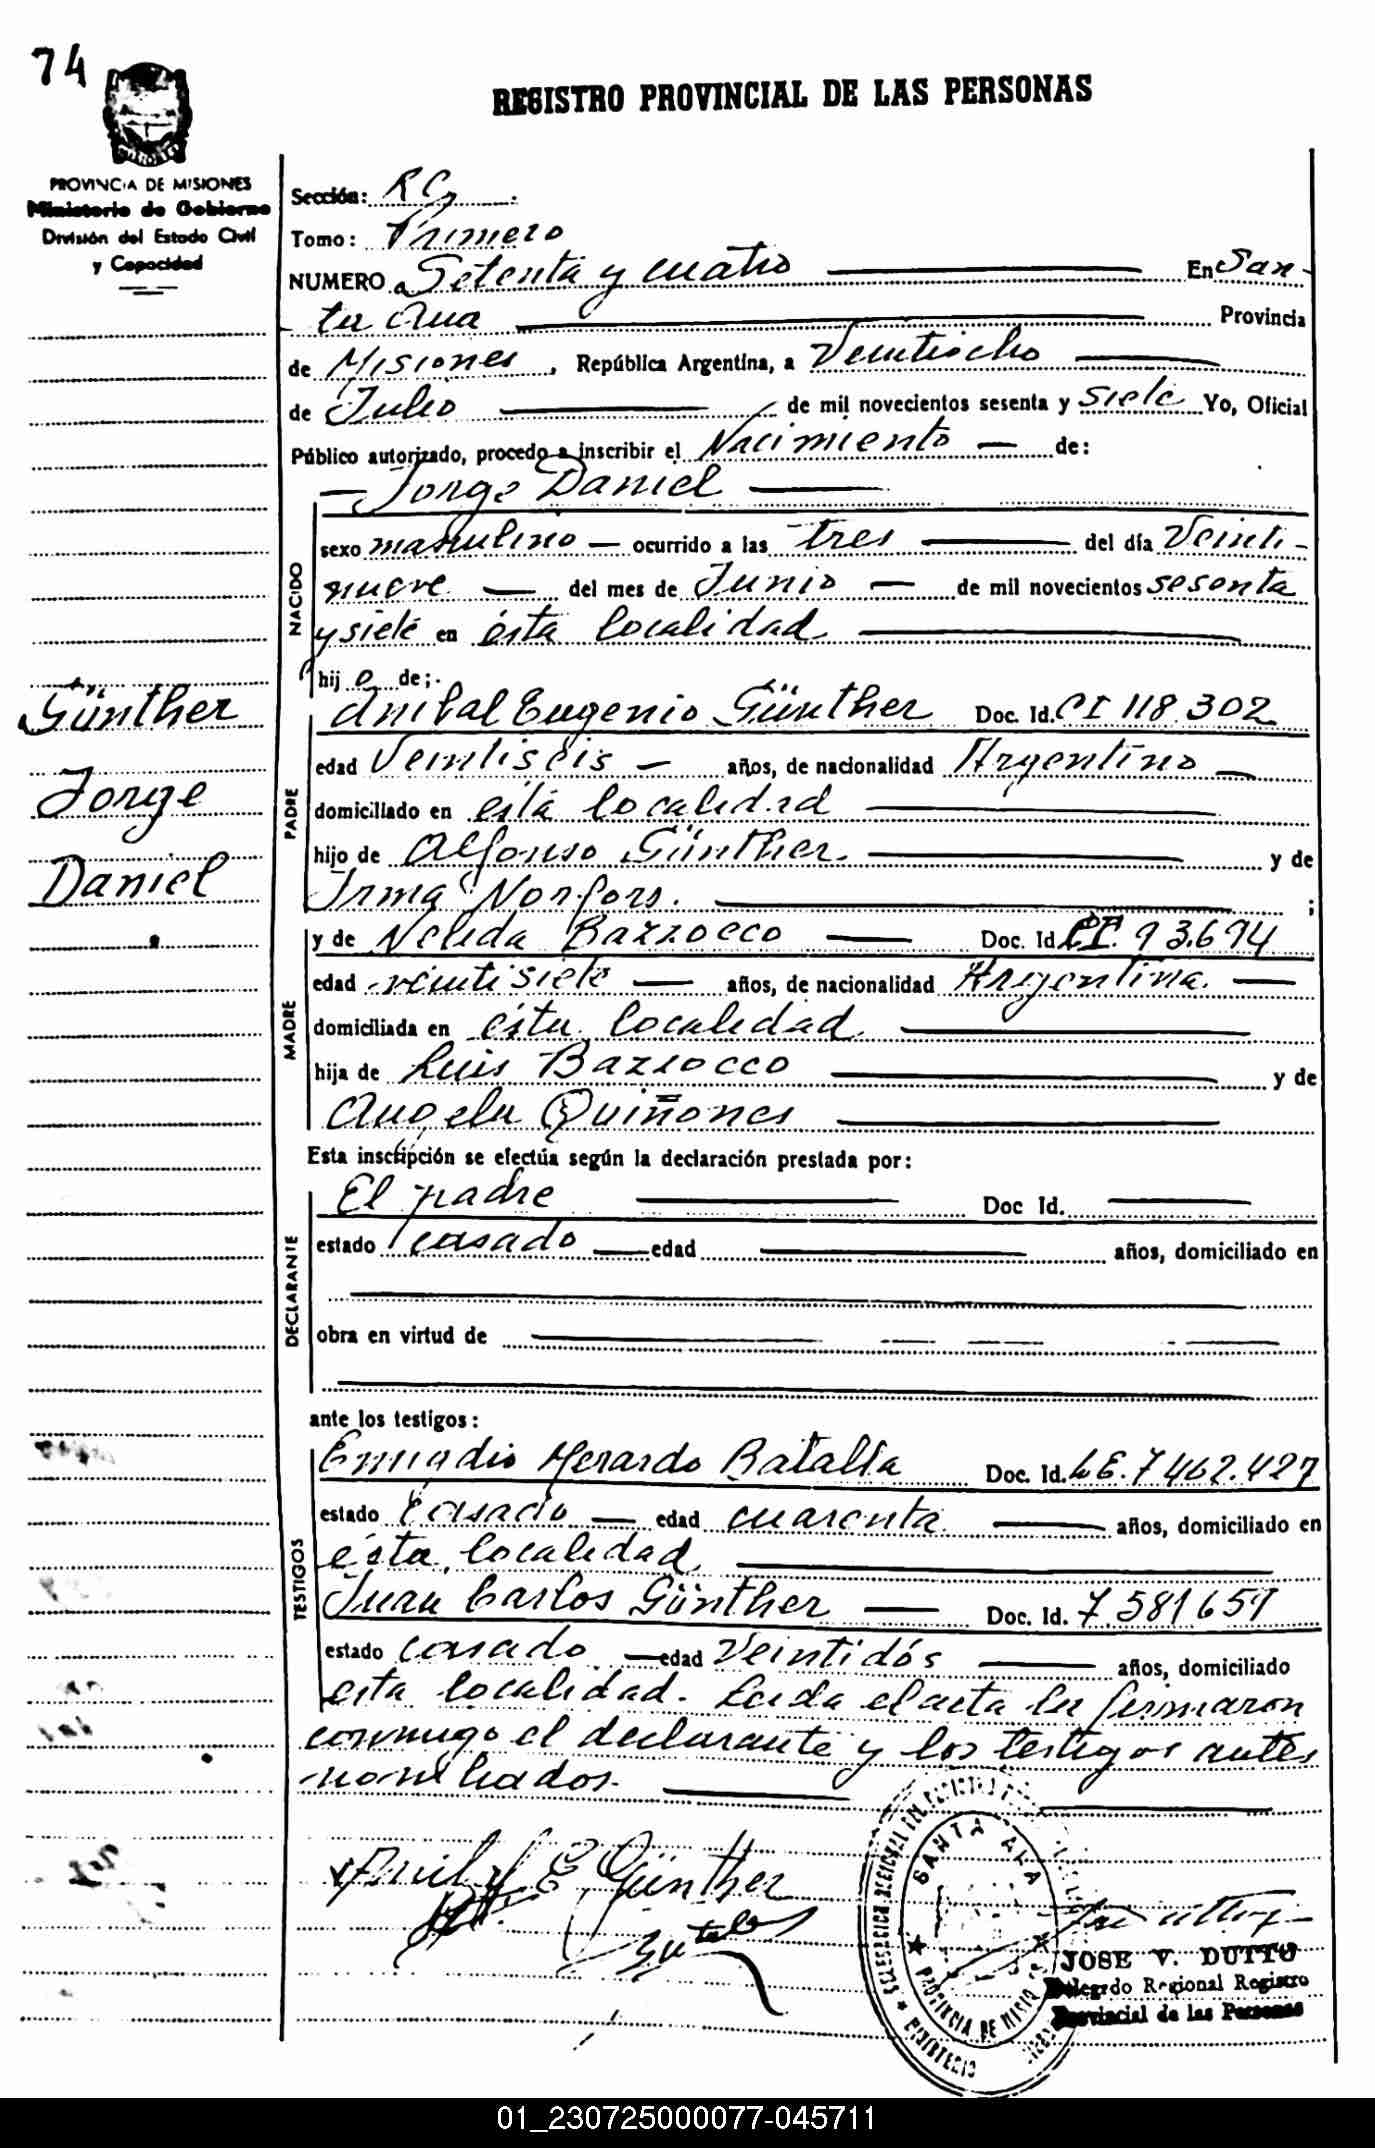 74
REGISTRO PROVINCIAL DE LAS PERSONAS
PROVINCIA DE MISIONES
Ministerio de Gobierno
División del Estado Civil
y Capacidad
Sección: RC
Tomo: Primero
NUMERO Setenta y cuatro En San-
ta Ana Provincia
de Misiones, República Argentina, a Veintiocho
de Julio de mil novecientos sesenta y siete Yo, Oficial
Público autorizado, procedo a inscribir el Nacimiento de:
Jorge Daniel
NACIDO
sexo masculino ocurrido a las tres del día Veinti-
nueve del mes de Junio de mil novecientos sesenta
y siete en ésta localidad
hijo de;
Günther
Jorge
Daniel
PADRE
Anibal Eugenio Günther Doc. Id. CI 118.302
edad Veintiseis años, de nacionalidad Argentino
domiciliado en ésta localidad
hijo de Alfonso Günther y de
Irma Norfors. ;
MADRE
y de Nelida Bazzocco Doc. Id. CI. 93.694
edad veintisiete años, de nacionalidad Argentina.
domiciliada en ésta localidad
hija de Luis Bazzocco y de
Angela Quiñones
Esta inscripción se efectúa según la declaración prestada por:
DECLARANTE
El padre Doc Id.
estado casado edad años, domiciliado en
obra en virtud de
ante los testigos:
TESTIGOS
Gerardo Batalla Doc. Id. LE. 7462.427
estado Casado edad cuarenta años, domiciliado en
ésta localidad
Juan Carlos Günther Doc. Id. 7.581659
estado casado edad Veintidós años, domiciliado
esta localidad. Leida el acta la firmaron
conmigo el declarante y los testigos antes
nombrados.
E Günther
SANTA ANA
PROVINCIA DE MISIONES
JOSE V. DUTTO
Delegado Regional Registro
Provincial de las Personas
01_230725000077-045711